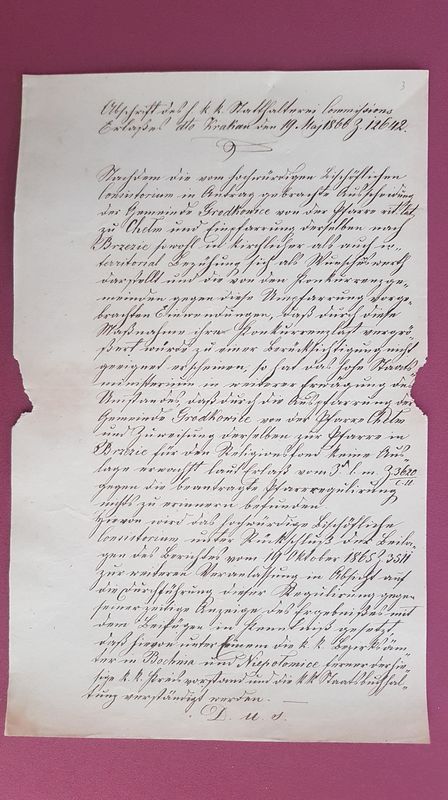 3
Abschrift des h. k. k. Statthalterei Commissions
Erlaßes dto Krakau den 19. Maj 1866 Z. 12642.
Nachdem die vom hochwürdigen Bischöflichen
Consistorium in Antrag gebrachte Ausscheidung
der Gemeinde Grodkowice von der Pfarre rit. lat.
zu Chełm und Einpfarrung derselben nach
Brzezie sowohl in kirchlicher als auch in
territorial Beziehung sich als Wünschenswerth
darstellt und die von den Konkurrenzge-
meinden gegen diese Umpfarrung vorge-
brachten Einwendungen, daß durch diese
Maßnahme ihre Konkurrenzlast vergrö-
ßert würde zu einer Berücksichtigung nicht
geeignet erscheinen, so hat das hohe Staats-
ministerium in weiterer Erwägung des
Umstandes daß durch die Auspfarrung der
Gemeinde Grodkowice von der Pfarre Chełm
und Zuweisung derselben zur Pfarre in
Brzezie für den Religionsfond keine Aus-
lage erwachst laut Erlaß vom 3. l. M. Z. 3620
gegen die beantragte Pfarrregulirung
nichts zu erinnern befunden.
Hievon wird das hochwürdige Bischöfliche
Consistorium unter Rückschluß der Beila-
gen des Berichtes vom 19 Oktober 1865 Z. 3511
zur weiteren Veranlassung in Absicht auf
die Durchführung dieser Regulirung gegen
seinerzeitige Anzeige des Ergebnißes mit
dem Beifügen in Kenntniß gesetzt,
daß hievon unter Einem die k. k. Bezirksäm-
ter in Bochnia und Niepołomice ferner der hie-
sige k. k. Kreisvorstand und die k. k. Staatsbuchhal-
tung verständigt werden. —
D. u. s.